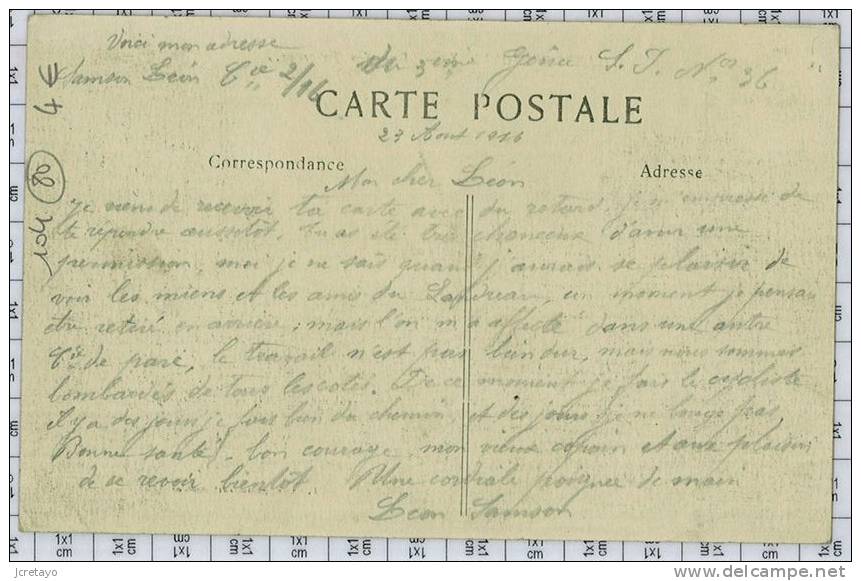 Voici mon adresse
Samson Léon Cie 2/16 du 3ème Génie S. P. Nos 36
4 €
CARTE POSTALE
23 Aout 1916
Correspondance
Adresse
80
104
Mon cher Léon
je viens de recevoir ta carte avec du retard, je m'empresse de
te repondre aussitot, tu as été très chanceux d'avoir une
permission, moi je ne sais quand j'aurais se plaisir de
voir les miens et les amis du Landreau, un moment je pensais
etre retiré en arrière; mais l'on m'a affecté dans une autre
Cie de parc, le travail n'est pas bien dur, mais nous sommes
bombardés de tous les cotés. En ce moment je fais le cycliste
il y a des jours je fais bien du chemin, et des jours je ne bouge pas
Bonne santé - bon courage, mon vieux copain et au plaisir
de se revoir bientôt Une cordiale poignée de main
Léon Samson
jcretayo
delcampe.net